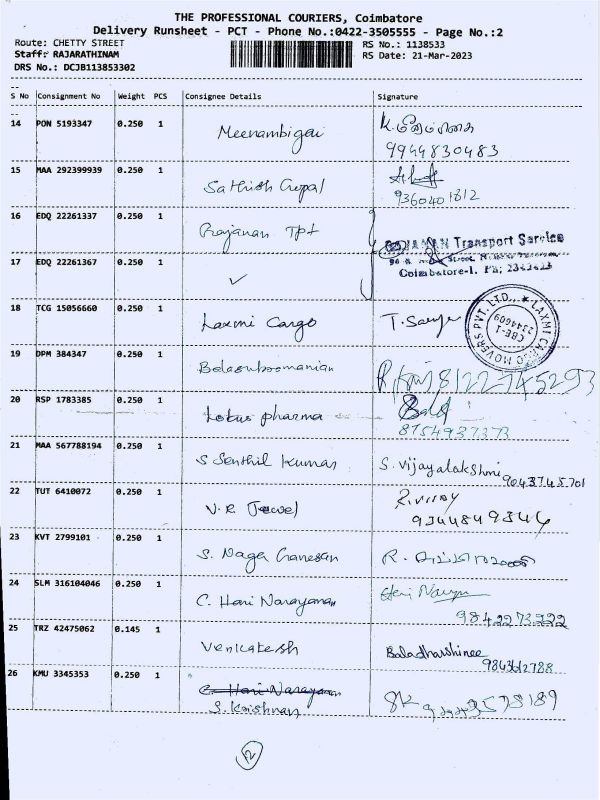 THE PROFESSIONAL COURIERS, Coimbatore
Delivery Runsheet - PCT - Phone No.:0422-3505555 - Page No.:2
Route: CHETTY STREET
RS No.: 1138533
Staff: RAJARATHINAM
RS Date: 21-Mar-2023
DRS No.: DCJB113853302
S No Consignment No Weight PCS Consignee Details Signature
14 PON 5193347 0.250 1 Meenambigai
9944830483
15 MAA 292399939 0.250 1 Sathish Gopal
9360401812
16 EDQ 22261337 0.250 1 Rajanan Tpt
Transport Service
17 EDQ 22261367 0.250 1 ✓
Coimbatore-1.
18 TCG 15056660 0.250 1 Laxmi Cargo
LAXMI CARGO MOVERS PVT. LTD.,
CBE-1
2344609
19 DPM 384347 0.250 1 Balasubramanian
8122745293
20 RSP 1783385 0.250 1 Lotus pharma
8754937373
21 MAA 567788194 0.250 1 S Senthil Kumar S. Vijayalakshmi
9043745701
22 TUT 6410072 0.250 1 V.R Jewel
9344849344
23 KVT 2799101 0.250 1 S. Naga Ganesan
24 SLM 316104046 0.250 1 C. Hari Narayanan
9842273922
25 TRZ 42475062 0.145 1 Venkatesh Baladharshinee
26 KMU 3345353 0.250 1 C. Hari Narayanan
S. Krishnan
12